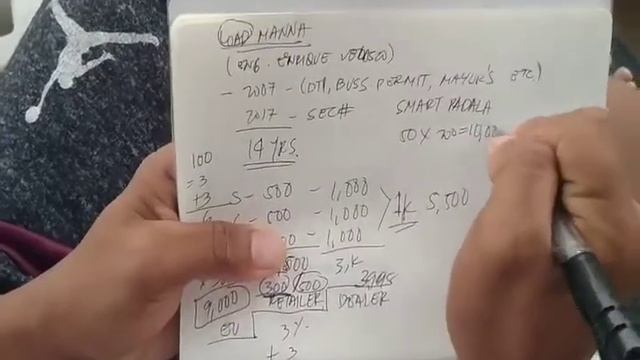 LOAD MANNA
(ENG. ENRIQUE VELASCO)
- 2007 - (DTI, BUSS PERMIT, MAYOR'S ETC)
2017 - SEC# SMART PADALA
14 YRS. 50 X 200=10,00
100
=3
+3 S - 500 - 1,000
- 500 - 1,000 > 1K 5,500
- 1,000
500 3,K
300/500 3,995
9,000 RETAILER DEALER
3%
+ 3